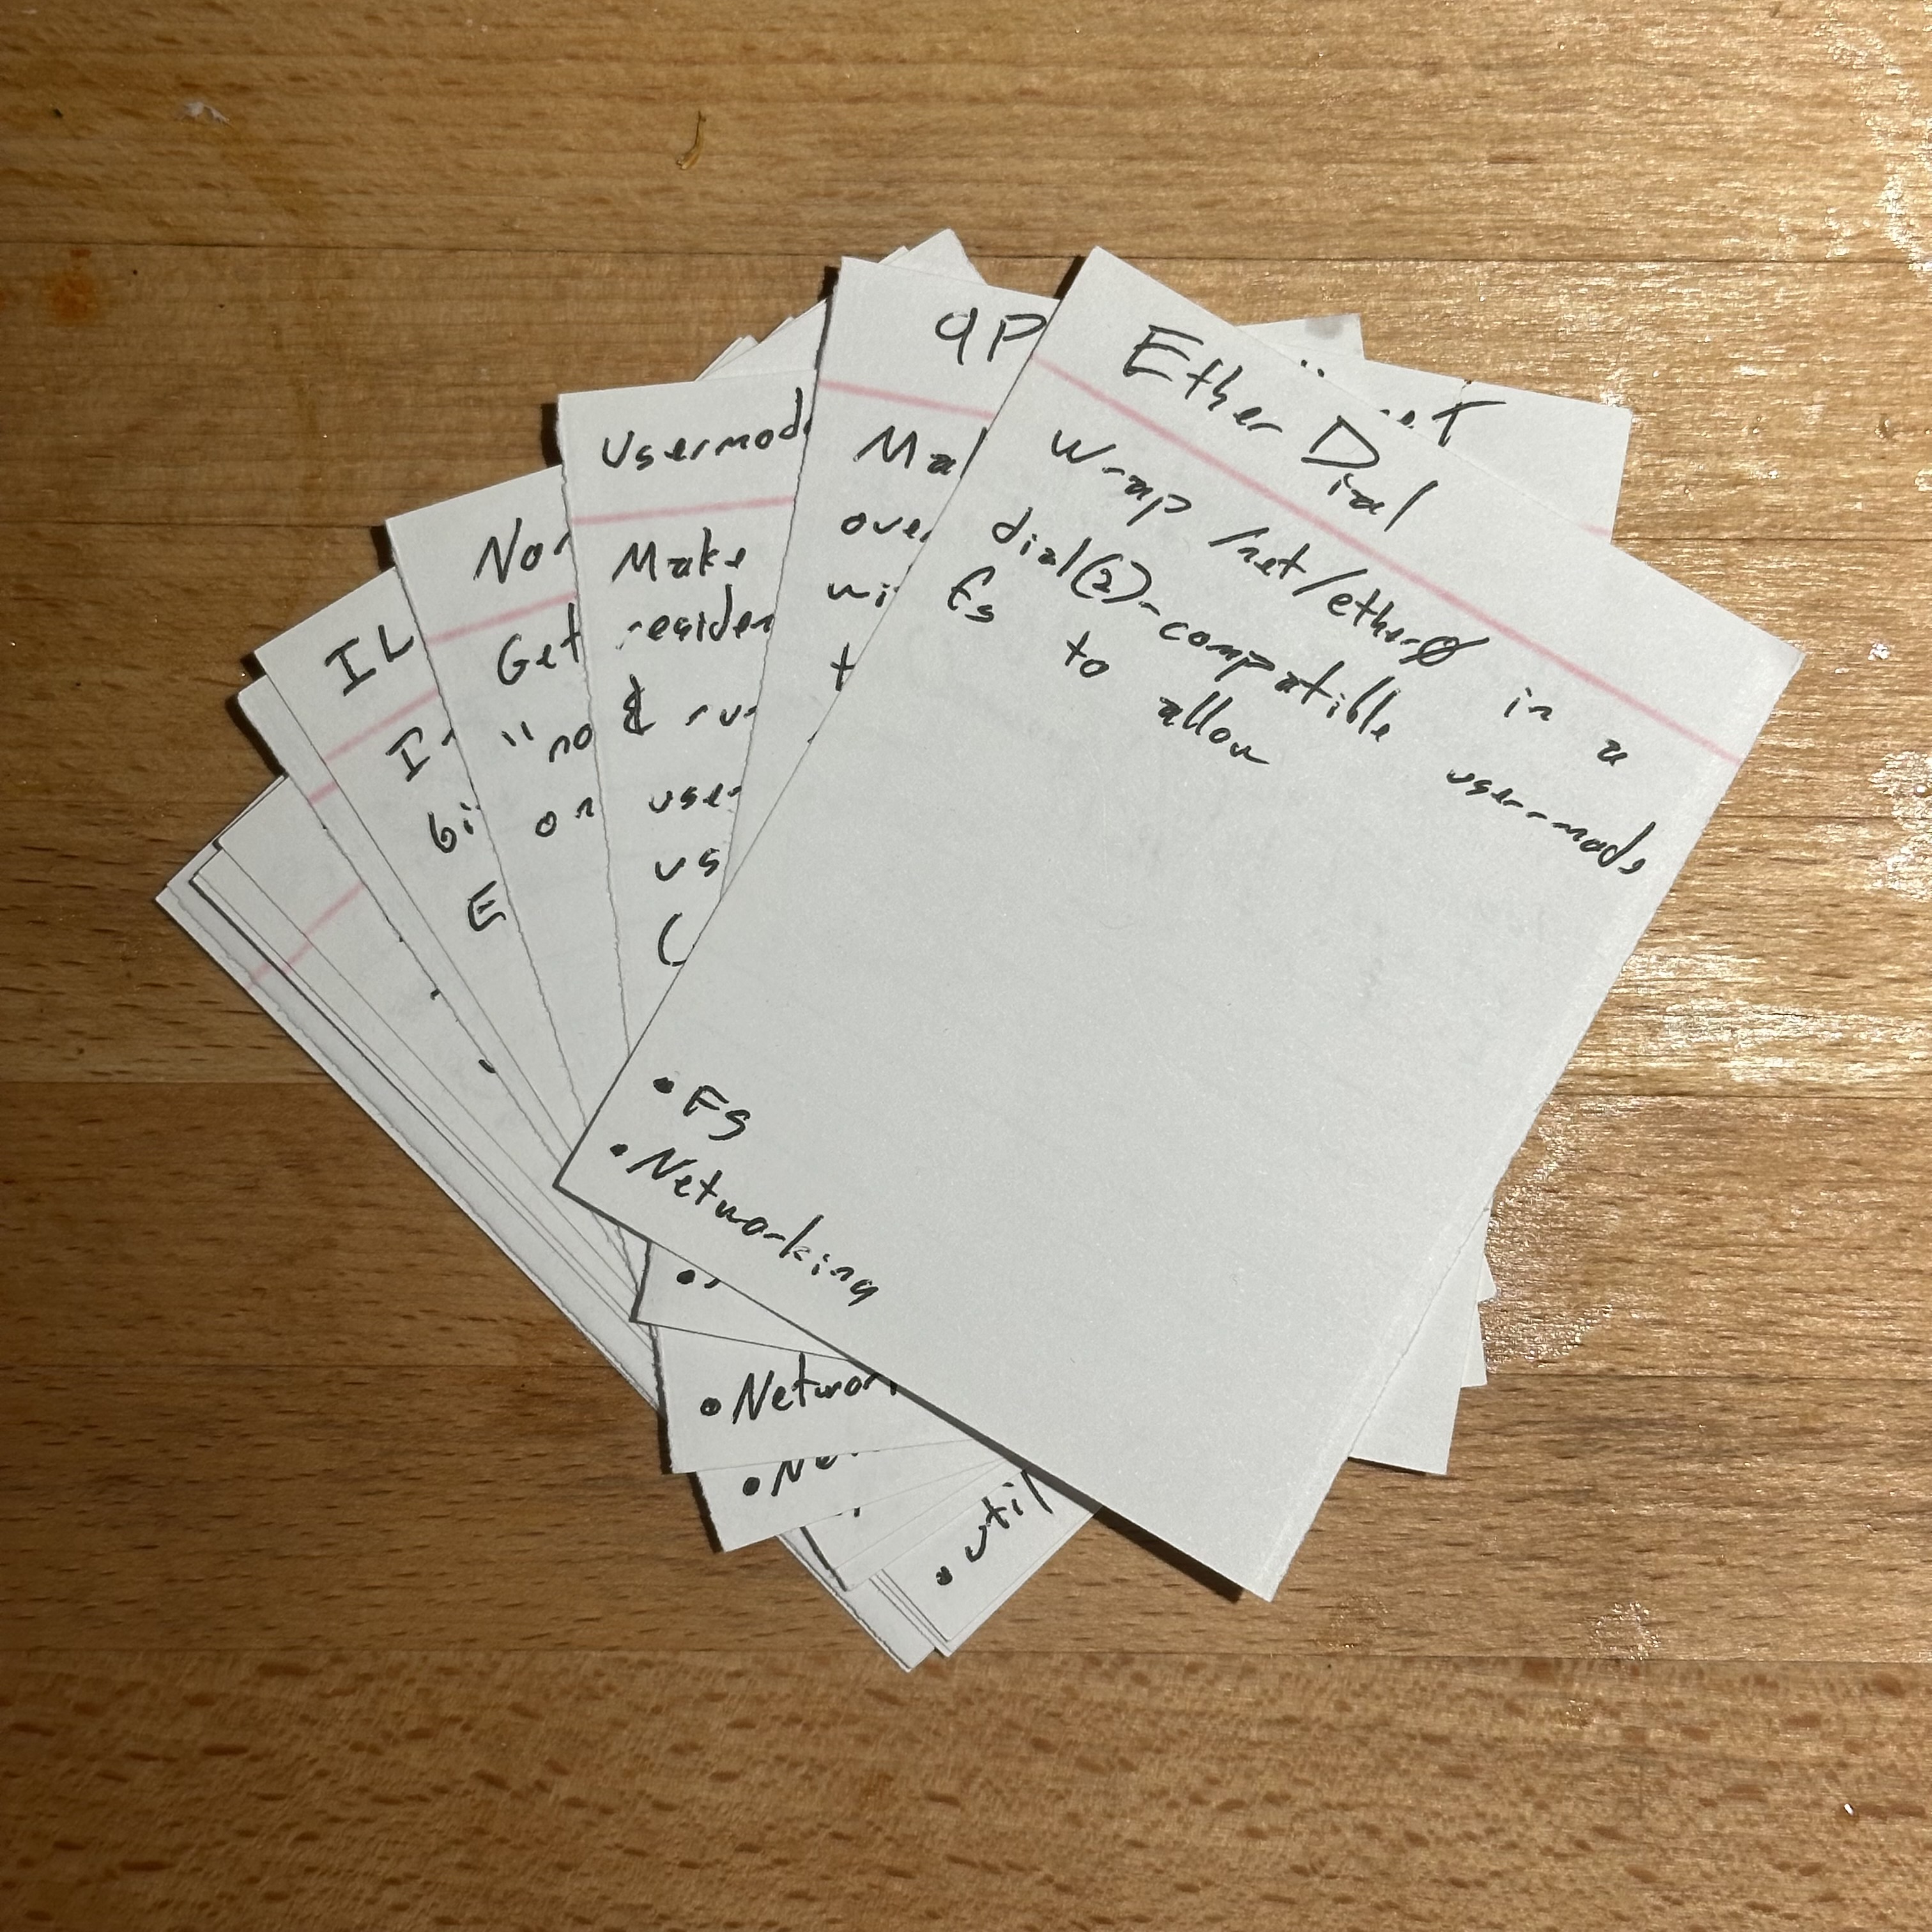 Ether Dial
Wrap /net/ether0 in a
dial(2)-compatible user-mode
fs to allow
• FS
• Networking
9P
Ma
over
wi
t
Usermode
Make
residen
& run
user
us
(
• Networ
No
Get
"no
on
• Ne
IL
I
bi
E
• util